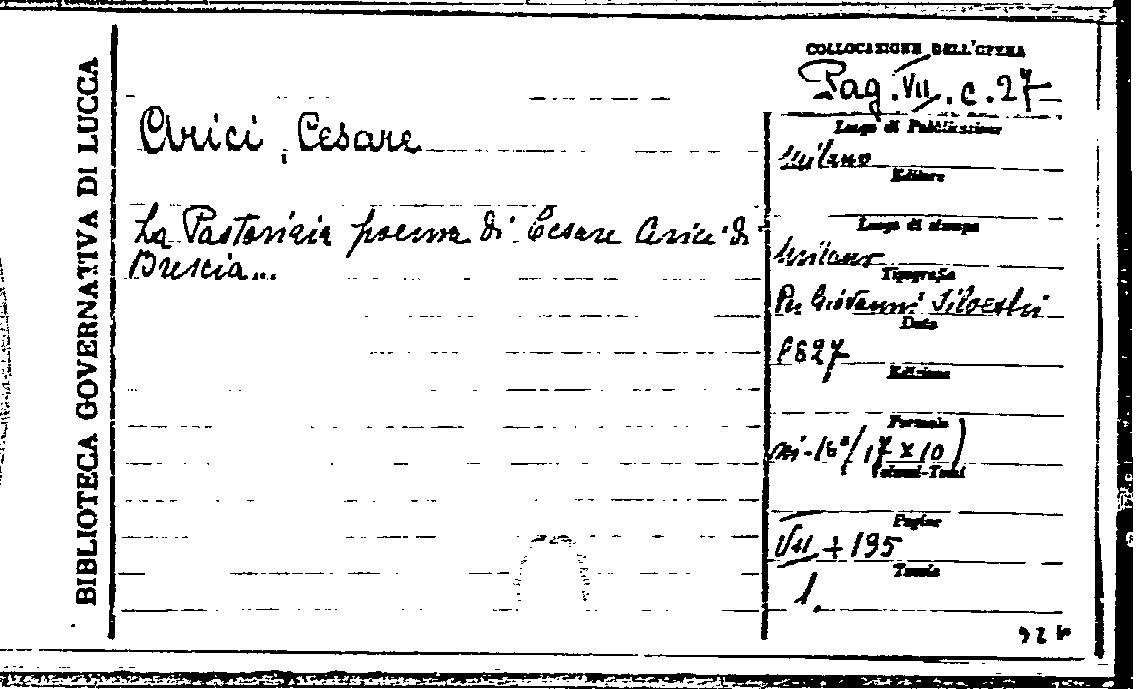 BIBLIOTECA GOVERNATIVA DI LUCCA
Arici, Cesare
La Pastorizia poema di Cesare Arici di
Brescia...
COLLOCAZIONE DELL'OPERA
Pag. VII. c. 27
Luogo di Pubblicazione
Milano
Editore
Luogo di stampa
Milano
Tipografia
Per Giovanni Silvestri
Data
1827
Edizione
Formato
in-16°/17 x 10)
Volumi-Tomi
Pagine
VII + 195
Tavole
1.